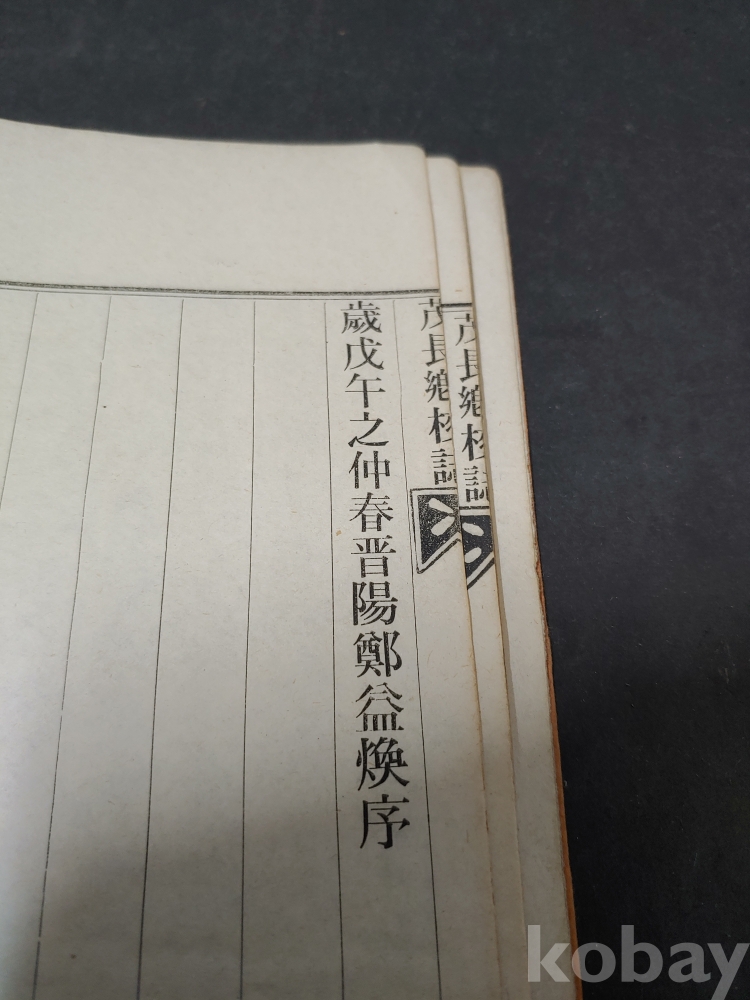 茂長鄕校誌
茂長鄕校誌
歲戊午之仲春晋陽鄭益煥序
kobay